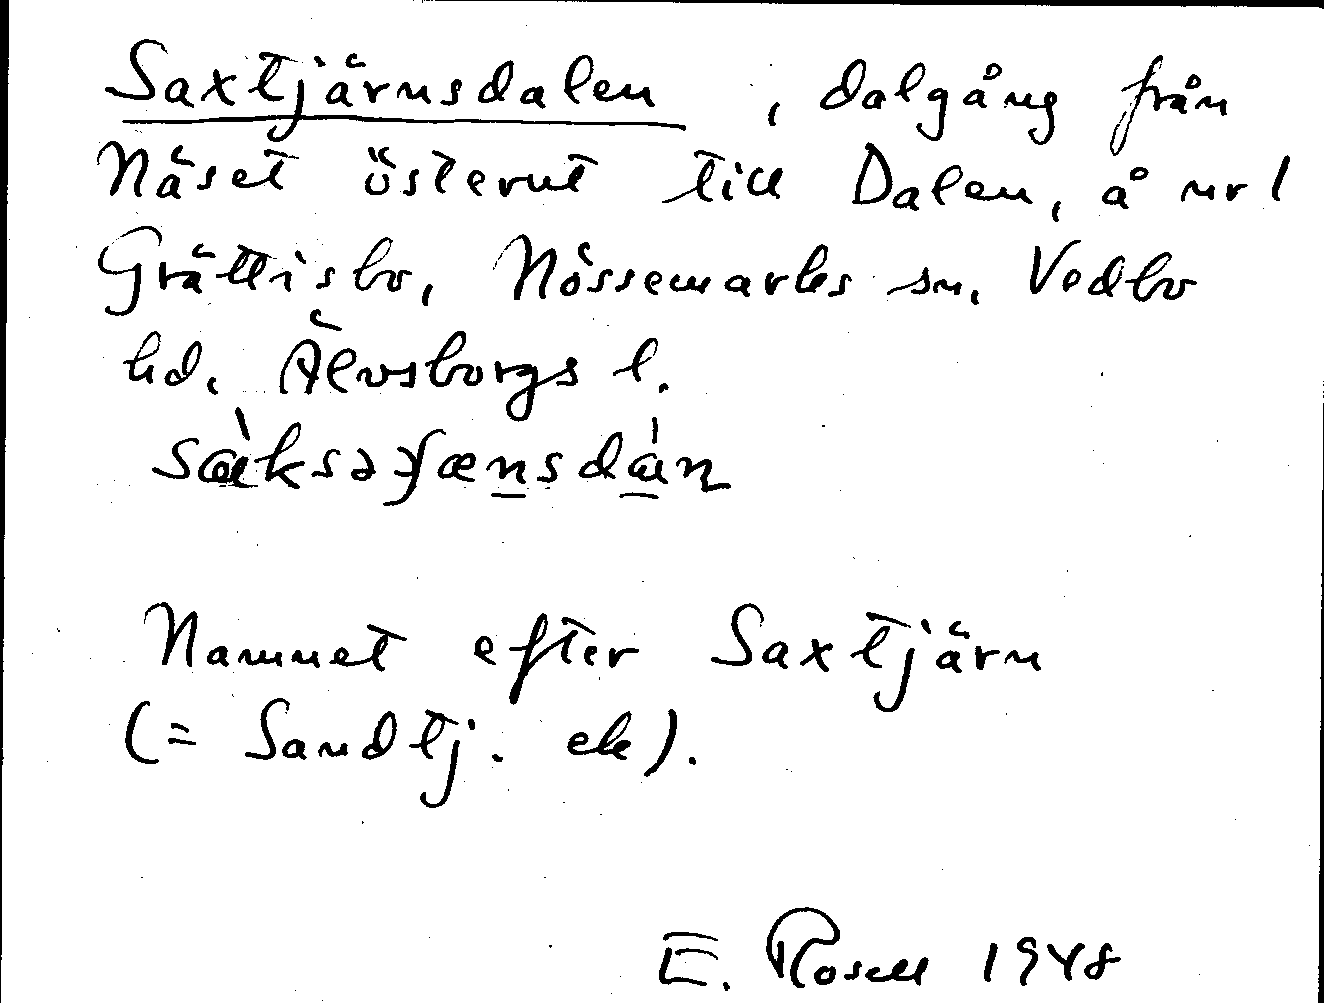 Saxtjärnsdalen, dalgång från
Näset österut till Dalen, å nr 1
Grättisbo, Nössemarks sn, Vedbo
hd. Älvsborgs l.
Namnet efter Saxtjärn
(= Sandtj. ek).
E. Rosell 1948